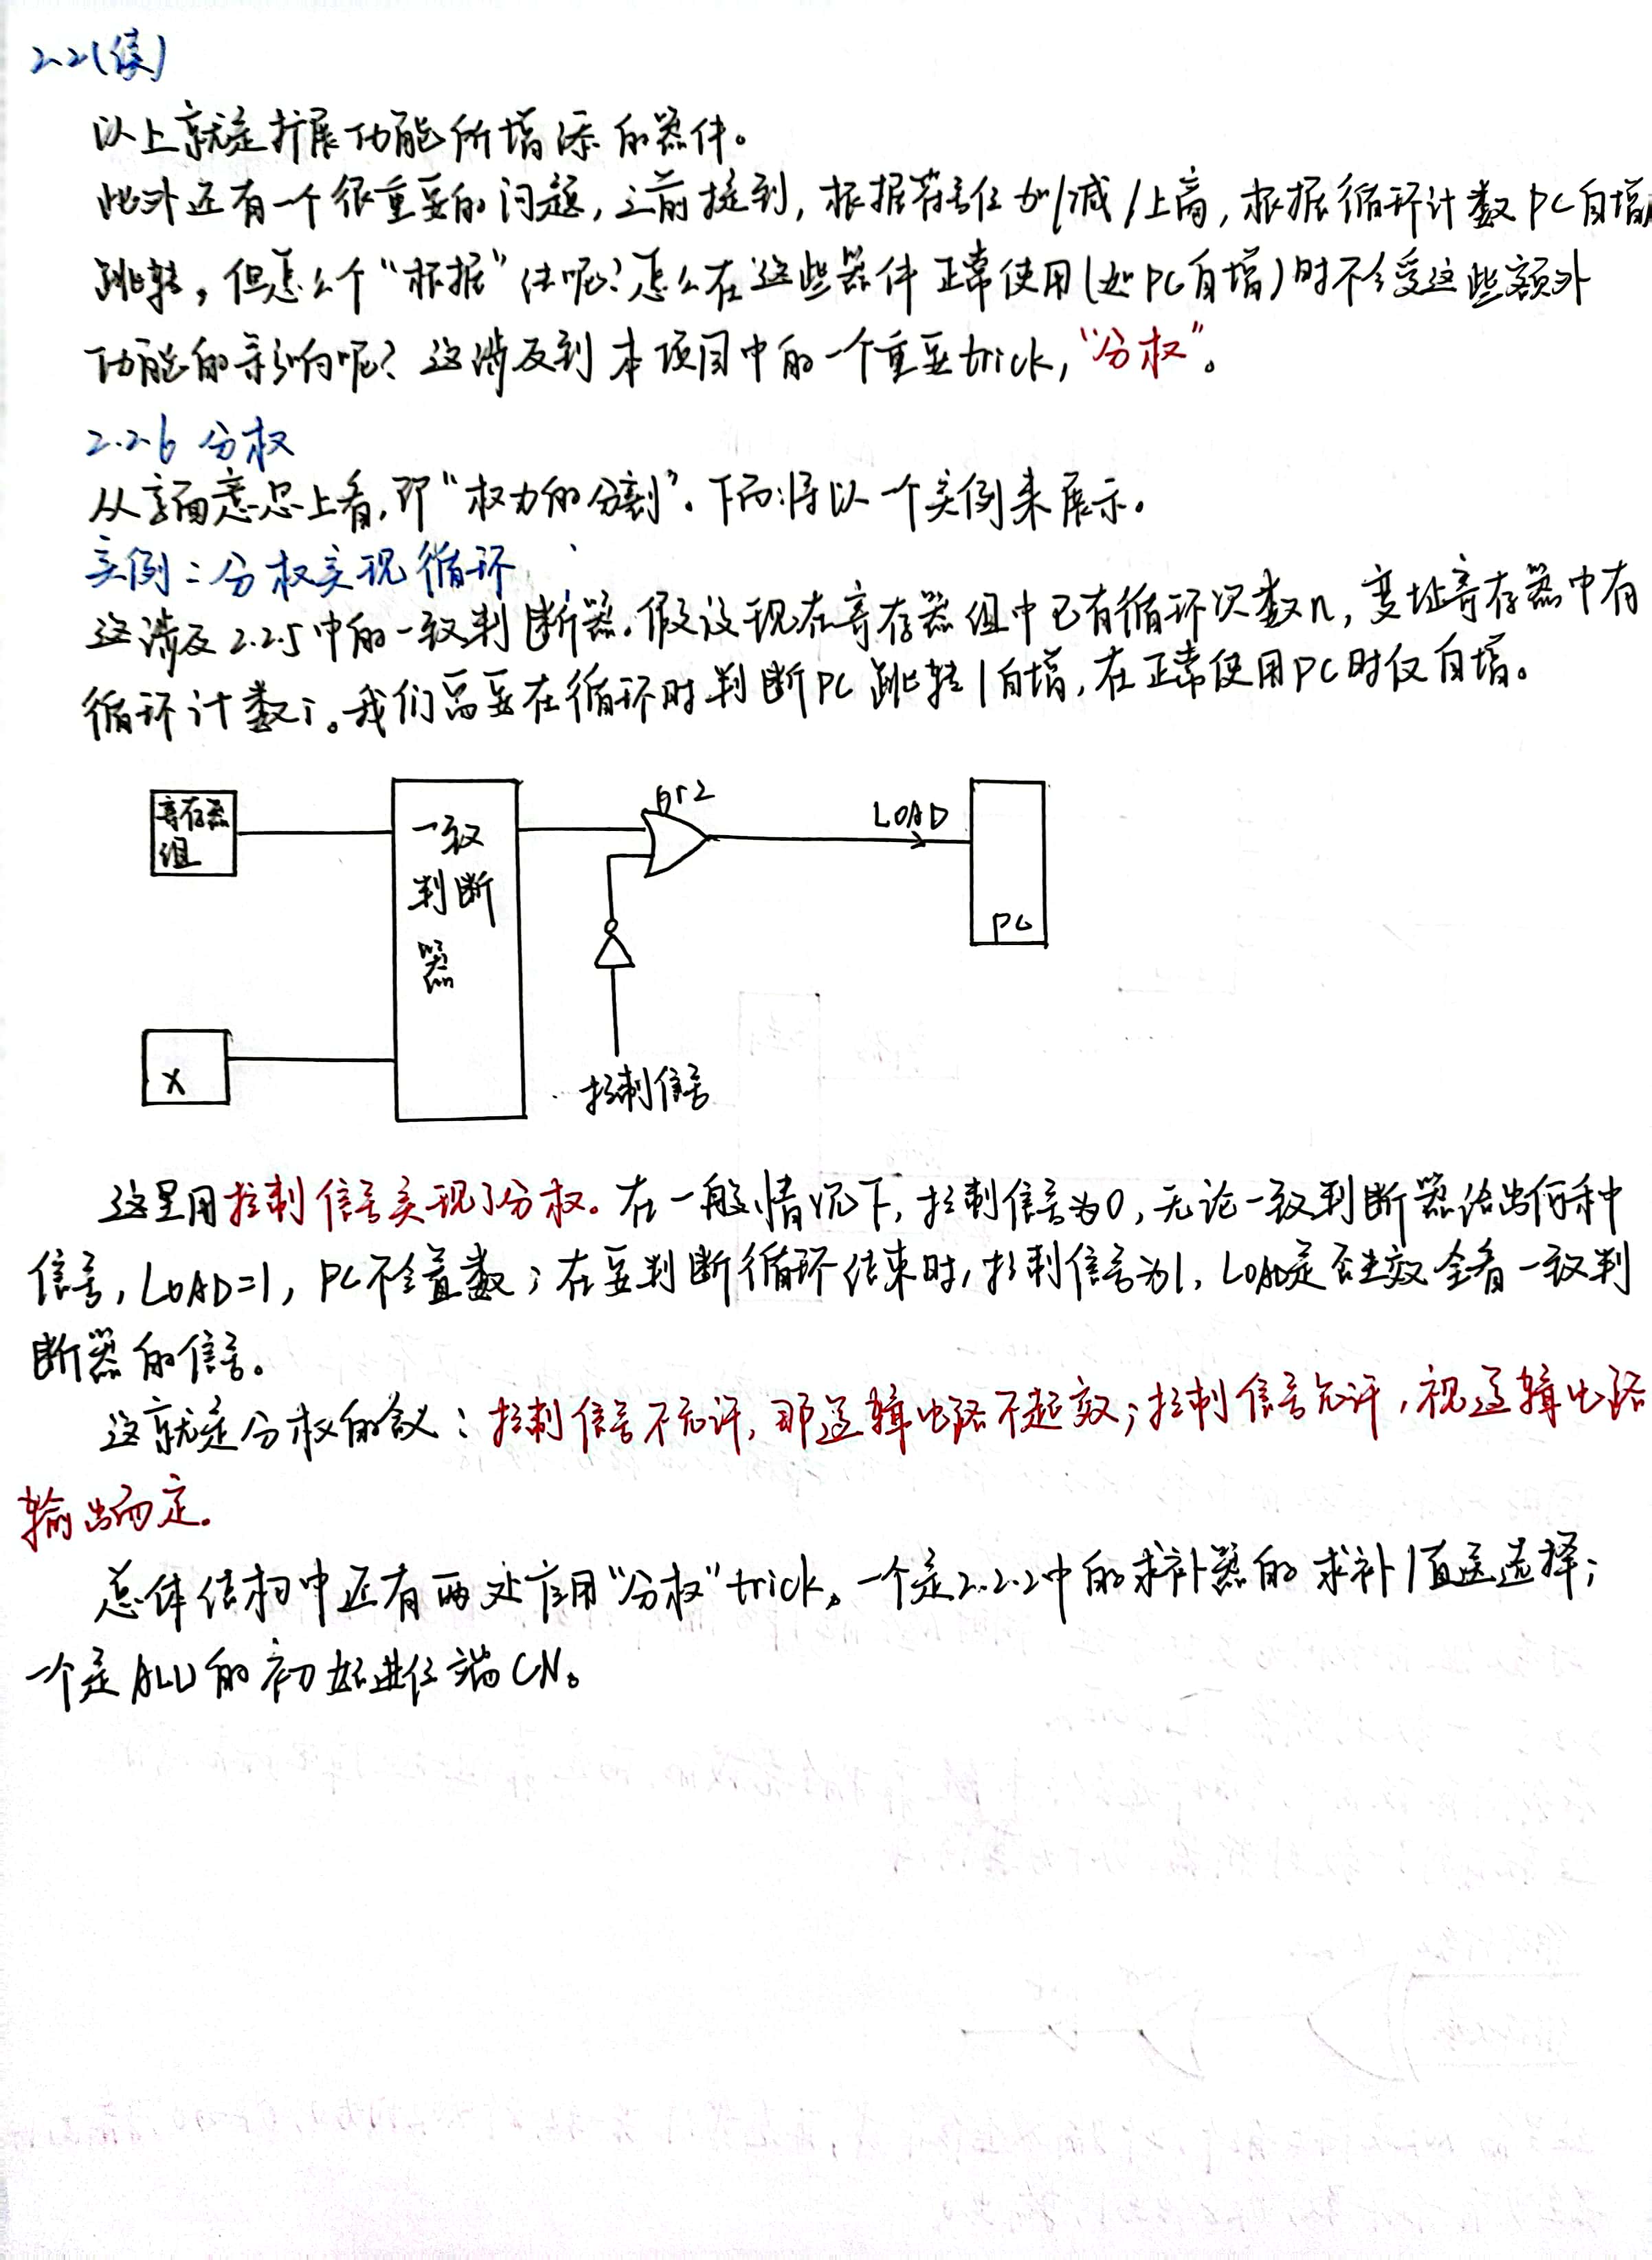 2.2(续)
以上就是扩展功能所增添的器件。
此外还有一个很重要的问题,之前提到,根据符号位加/减/上商,根据循环计数PC自增/
跳转,但怎么个“根据”法呢?怎么在这些器件正常使用(如PC自增)时不会受这些额外
功能的影响呢?这涉及到本项目中的一个重要trick,“分权”。
2.2.6 分权
从字面意思上看,即“权力的分割”。下面将以一个实例来展示。
实例:分权实现循环
这涉及2.2.5中的一致判断器。假设现在寄存器组中已有循环次数n,变址寄存器中有
循环计数i。我们需要在循环时判断PC跳转/自增,在正常使用PC时仅自增。
寄存器
组
一致
判断
器
or2
LOAD
PC
X
控制信号
这里用控制信号实现了分权。在一般情况下,控制信号为0,无论一致判断器给出何种
信号,LOAD=1,PC不会置数;在要判断循环结束时,控制信号为1,LOAD是否生效全看一致判
断器的信号。
这就是分权的含义:控制信号不允许,那逻辑电路不起效;控制信号允许,视逻辑电路
输出而定。
总体结构中还有两处应用“分权”trick。一个是2.2.2中的求补器的求补/直送选择;
一个是ALU的初始进位端CN。